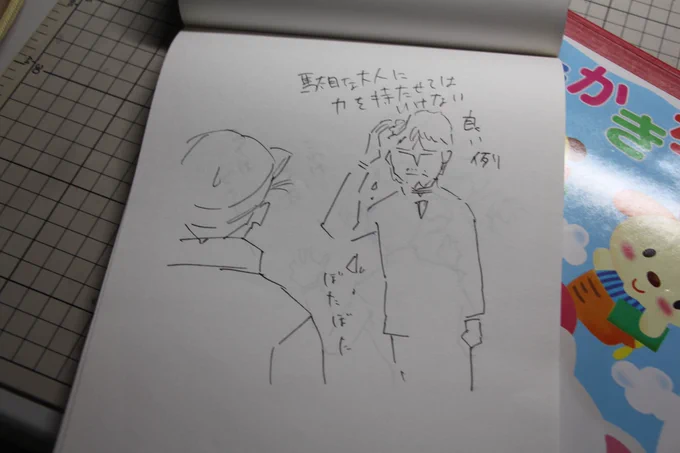 駄目な大人に
力を持たせては
いけない
良い例
ぼたぼた
かき